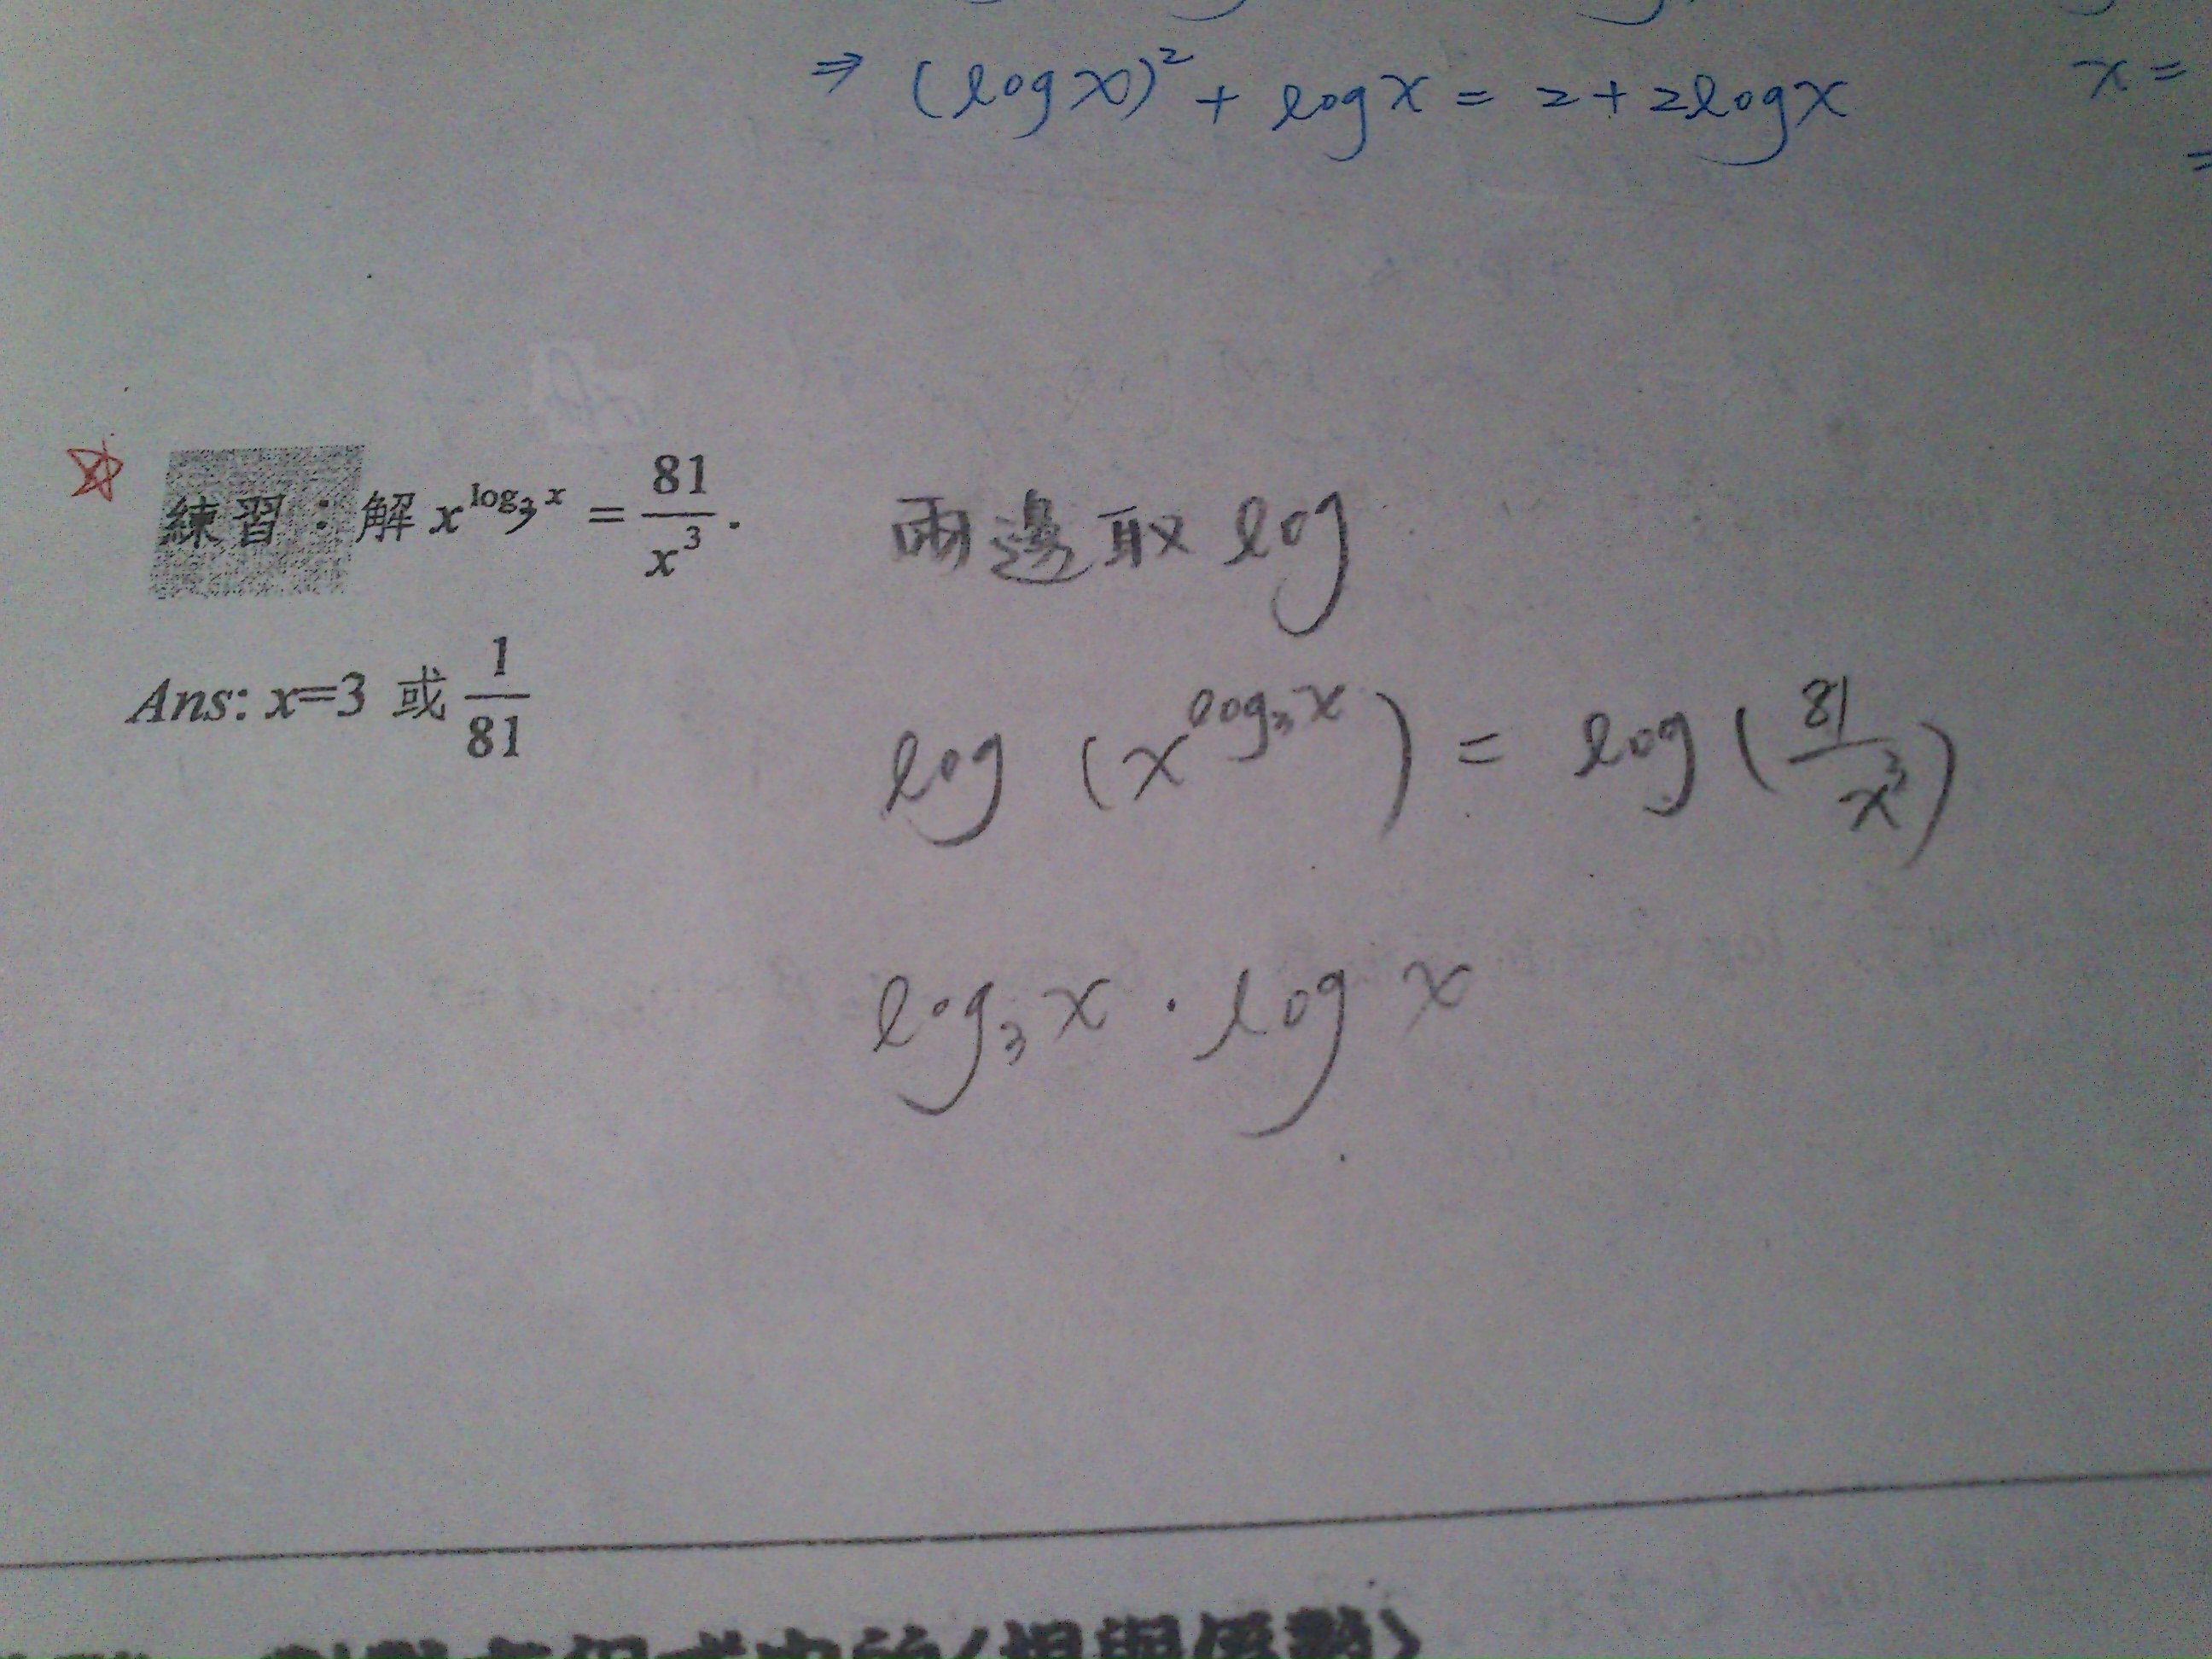 ⇒ (log x)² + log x = 2 + 2log x
x =
練習：解 x^{log₃ x} = 81/x³.
兩邊取 log
Ans: x=3 或 1/81
log (x^{log₃ x}) = log (81/x³)
log₃ x · log x